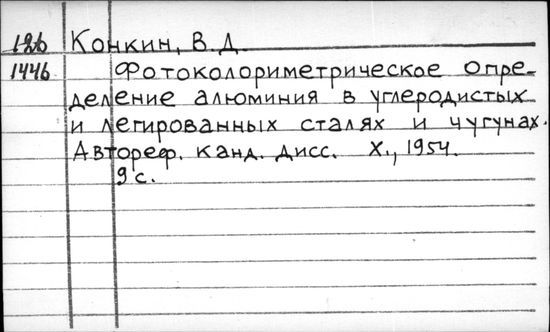 126 Конкин, В.Д.
1446 Фотоколориметрическое опре-
деление алюминия в углеродистых
и легированных сталях и чугунах.
Автореф. канд. дисс. Х., 1954.
9 с.